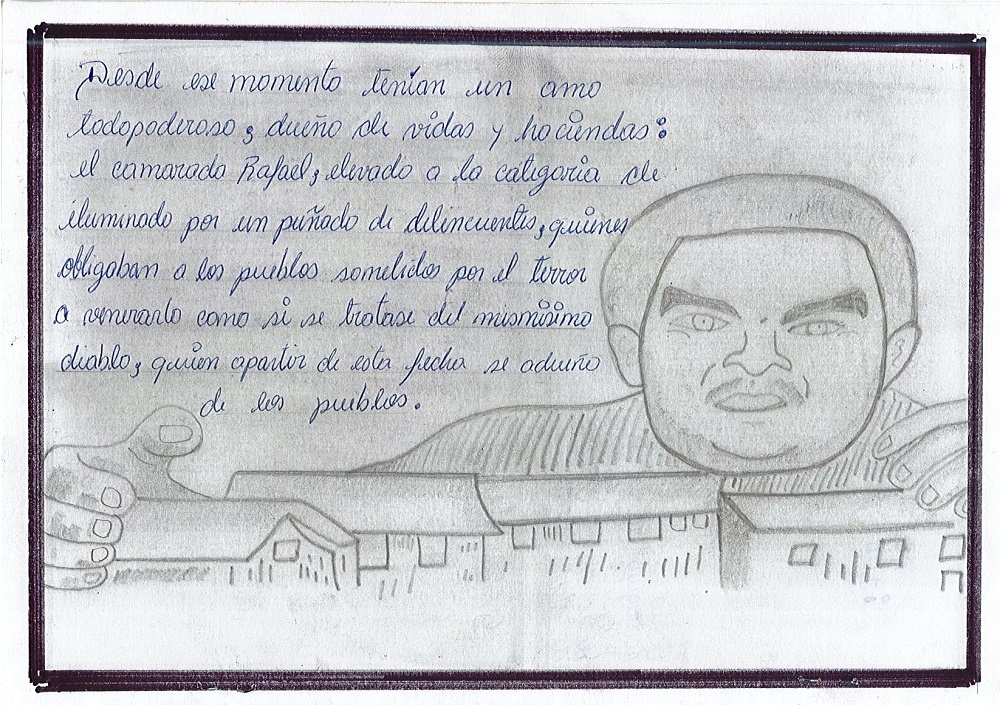 Desde ese momento tenían un amo
todopoderoso, dueño de vidas y haciendas:
el camarada Rafael, elevado a la categoria de
iluminado por un puñado de delincuentes, quienes
obligaban a los pueblos sometidos por el terror
a venerarlo como si se tratase del mismísimo
diablo, quien apartir de esta fecha se adueño
de los pueblos.